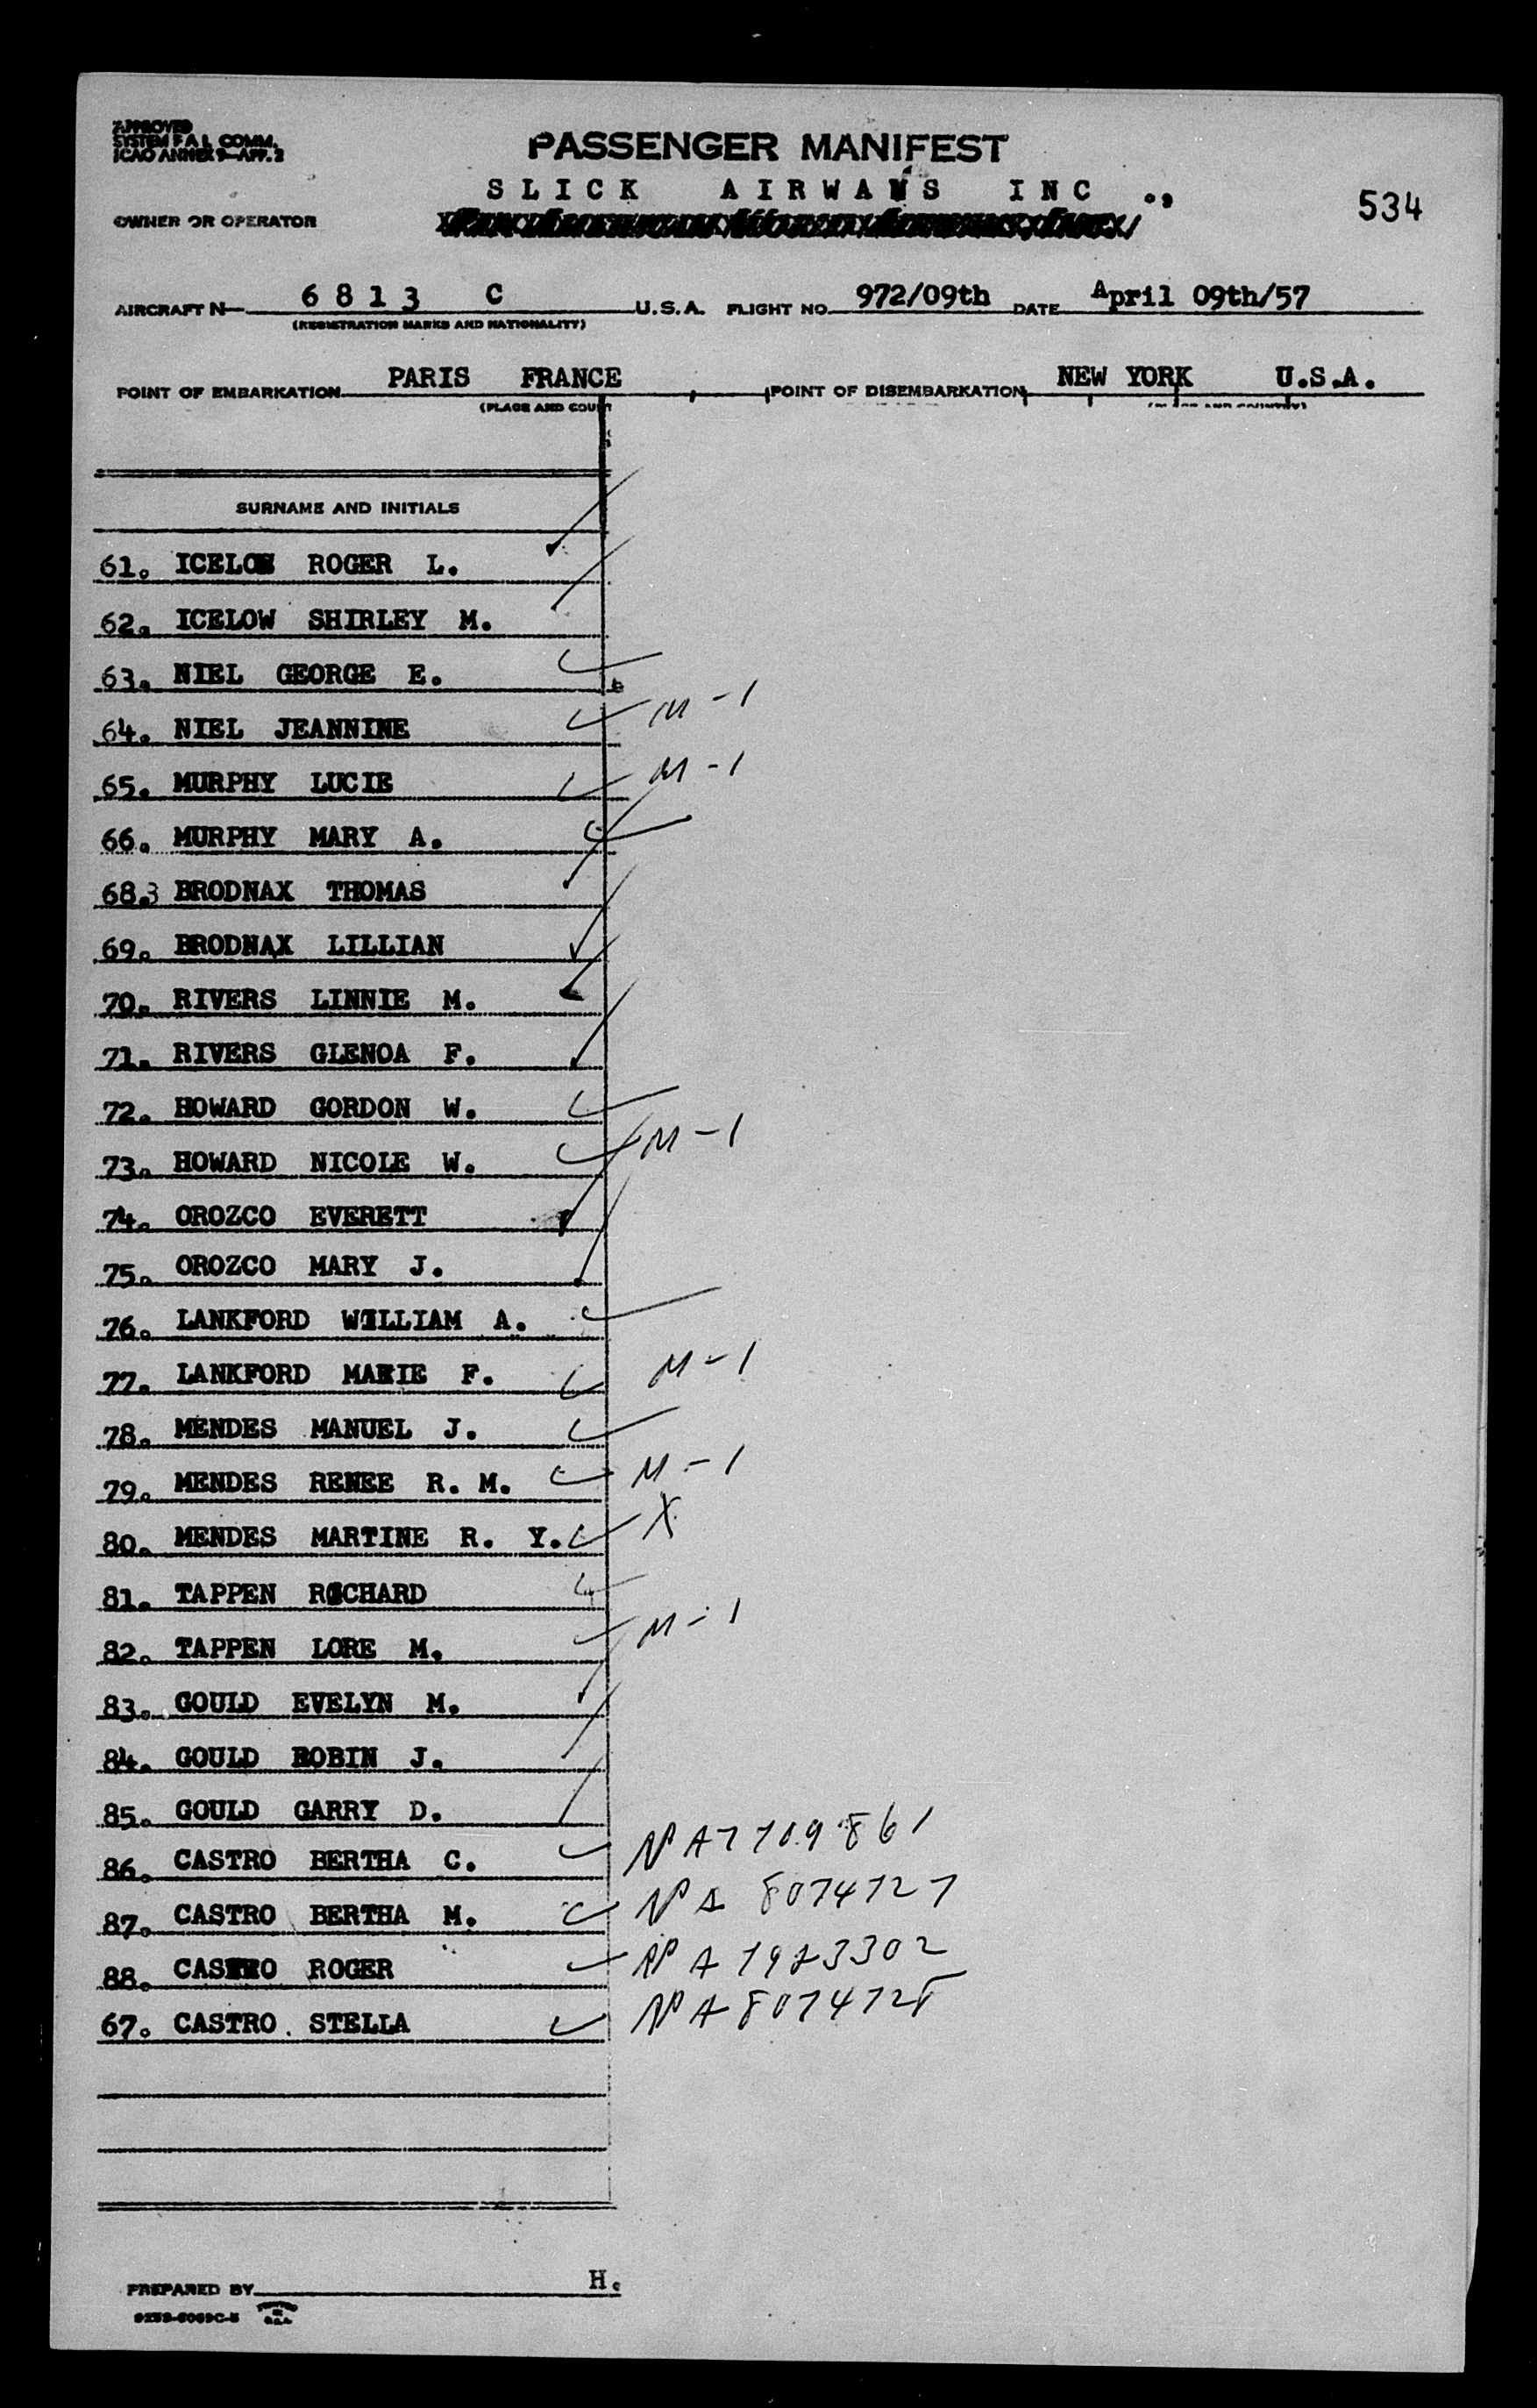 APPROVED
SYSTEM F A L COMM.
ICAO ANNEX 9—APP. 2
PASSENGER MANIFEST
SLICK AIRWAYS INC.,
534
OWNER OR OPERATOR
AIRCRAFT N— 6813 C U.S.A. FLIGHT NO. 972/09th DATE April 09th/57
(REGISTRATION MARKS AND NATIONALITY)
POINT OF EMBARKATION PARIS FRANCE POINT OF DISEMBARKATION NEW YORK U.S.A.
(PLACE AND COUN
SURNAME AND INITIALS
61. ICELOW ROGER L.
62. ICELOW SHIRLEY M.
63. NIEL GEORGE E.
64. NIEL JEANNINE M-1
65. MURPHY LUCIE M-1
66. MURPHY MARY A.
68. BRODNAX THOMAS
69. BRODNAX LILLIAN
70. RIVERS LINNIE M.
71. RIVERS GLENOA F.
72. HOWARD GORDON W.
73. HOWARD NICOLE W. M-1
74. OROZCO EVERETT
75. OROZCO MARY J.
76. LANKFORD WILLIAM A.
77. LANKFORD MARIE F. M-1
78. MENDES MANUEL J.
79. MENDES RENEE R. M. M-1
80. MENDES MARTINE R. Y. X
81. TAPPEN RICHARD
82. TAPPEN LORE M. M-1
83. GOULD EVELYN M.
84. GOULD ROBIN J.
85. GOULD GARRY D.
86. CASTRO BERTHA C.
87. CASTRO BERTHA M.
88. CASTRO ROGER
67. CASTRO STELLA
PREPARED BY H.